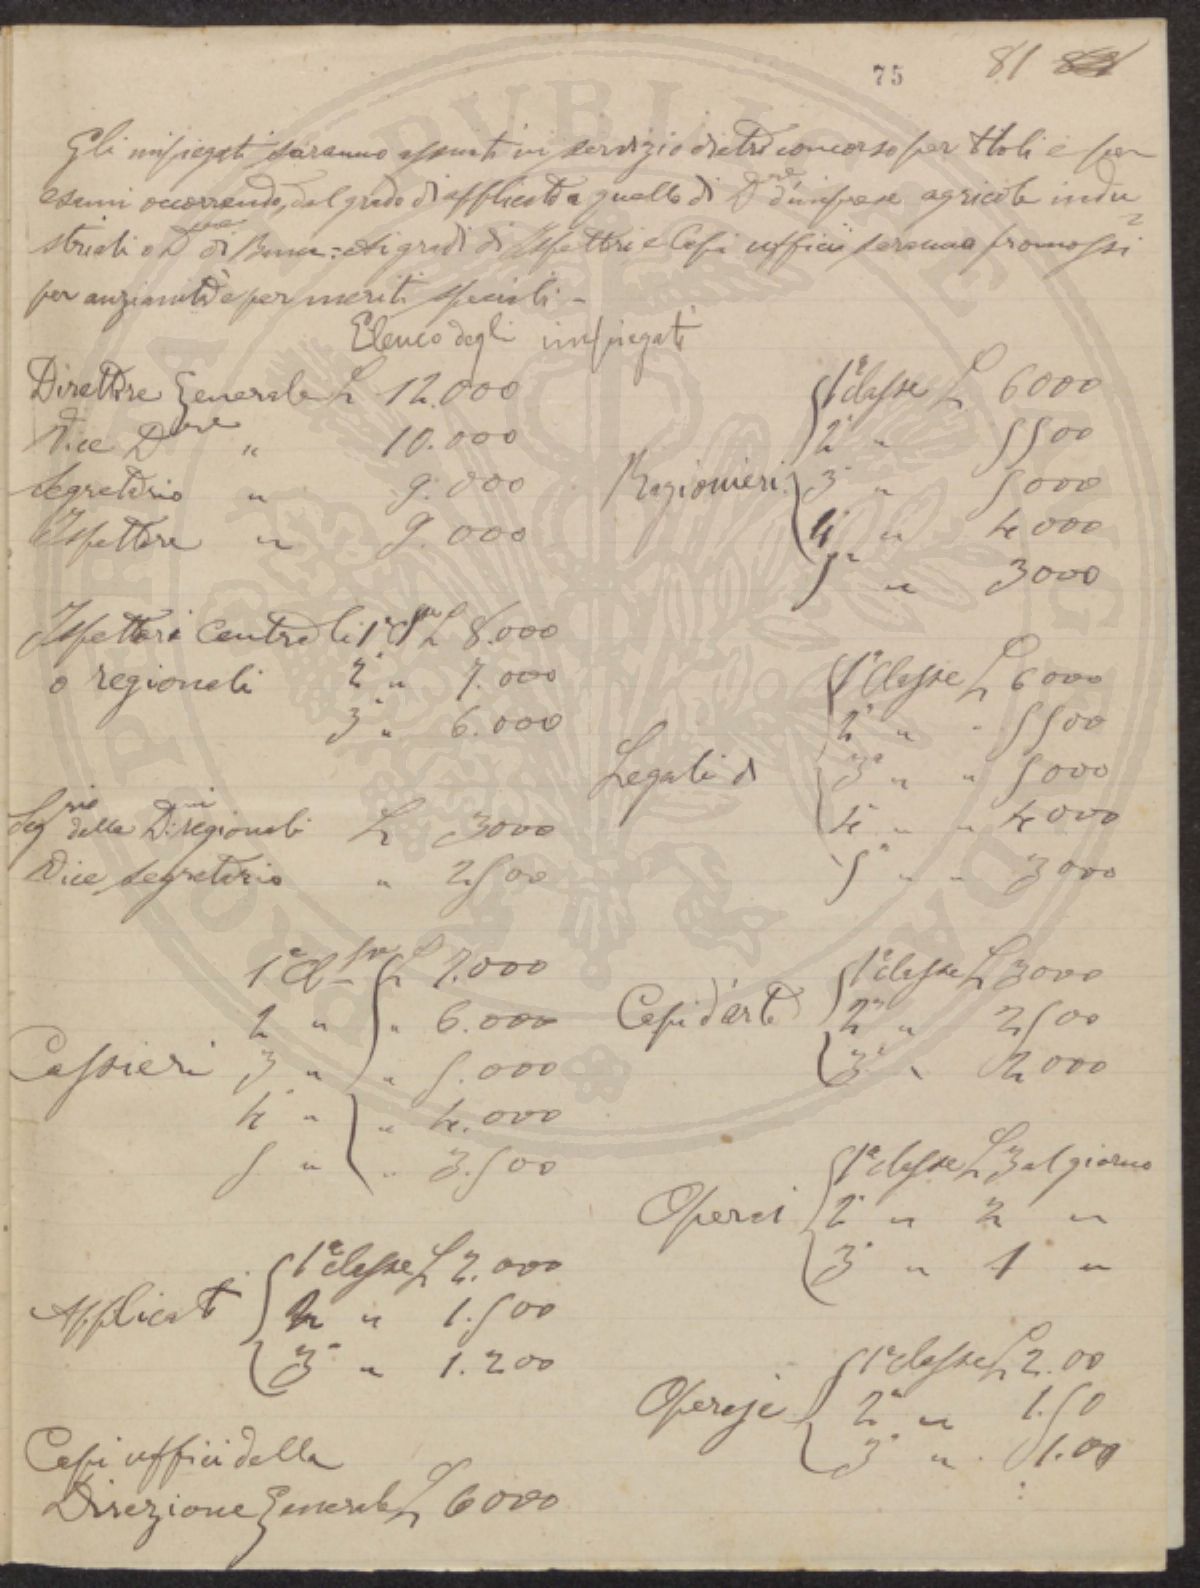 75 81
Gli impiegati saranno assunti in servizio dietro concorso per titoli e per
esami occorrendo, dal grado di applicato a quello di D.re d'imprese agricole indu
striali o D.re di Banca: ai gradi di Ispettri e Capi ufficii saranno promossi
per anzianità e per meriti speciali -
Elenco degli impiegati
Direttore Generale L 12.000
Vice D.ore " 10.000
Segretario " 9.000
Ispettore " 9.000
Ispettori Centrali 1ª Cl.sse L 8.000
o regionali 2ª " 7.000
3ª " 6.000
Seg.rio delle D.ni regionali L 3000
Vice segretario " 2500
1ª Cl.sse L 7.000
2 " " 6.000
Cassieri 3 " " 5.000
4 " " 4.000
5 " " 3.500
1ª classe L 2.000
Applicati 2 " 1.500
3ª " 1.200
Capi uffici della
Direzione Generale L 6000
1ª classe L 6000
2ª " 5500
Ragionieri 3ª " 5000
4ª " 4000
5ª " 3000
1ª Classe L 6000
2ª " " 5500
Legali di 3ª " " 5000
4ª " " 4000
5ª " " 3000
1ª classe L 3000
Capi d'arte 2ª " 2500
3ª " 2000
1ª classe L 3 al giorno
Operai 2ª " 2 "
3ª " 1 "
1ª classe L 2.00
Operaje 2ª " 1.50
3ª " 1.00